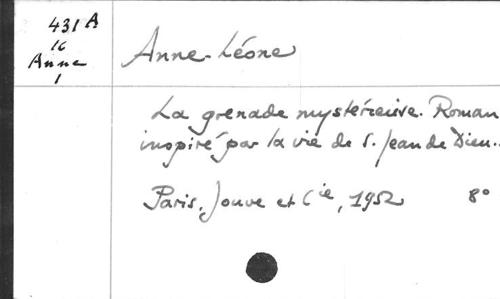 431 A
16
Anne
1
Anne-Léone
La grenade mystérieuse. Roman
inspiré par la vie de S. Jean de Dieu..
Paris, Jouve et Cie, 1952 8°